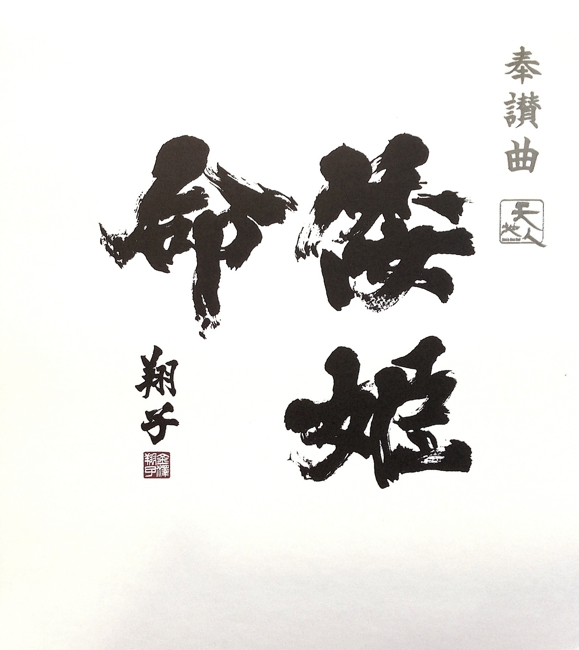 奉讃曲
天地人
倭姫
命
翔子
金澤翔子